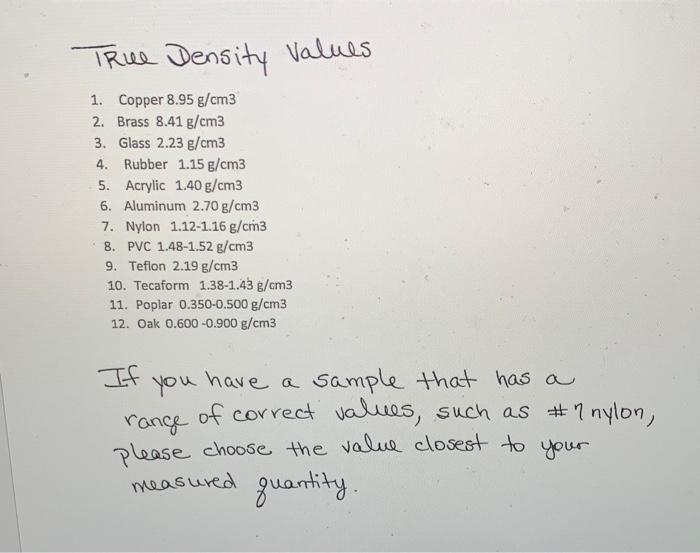 True Density Values
1. Copper 8.95 g/cm3
2. Brass 8.41 g/cm3
3. Glass 2.23 g/cm3
4. Rubber 1.15 g/cm3
5. Acrylic 1.40 g/cm3
6. Aluminum 2.70 g/cm3
7. Nylon 1.12-1.16 g/cm3
8. PVC 1.48-1.52 g/cm3
9. Teflon 2.19 g/cm3
10. Tecaform 1.38-1.43 g/cm3
11. Poplar 0.350-0.500 g/cm3
12. Oak 0.600 -0.900 g/cm3
If you have a sample that has a
range of correct values, such as #7 nylon,
please choose the value closest to your
measured quantity.